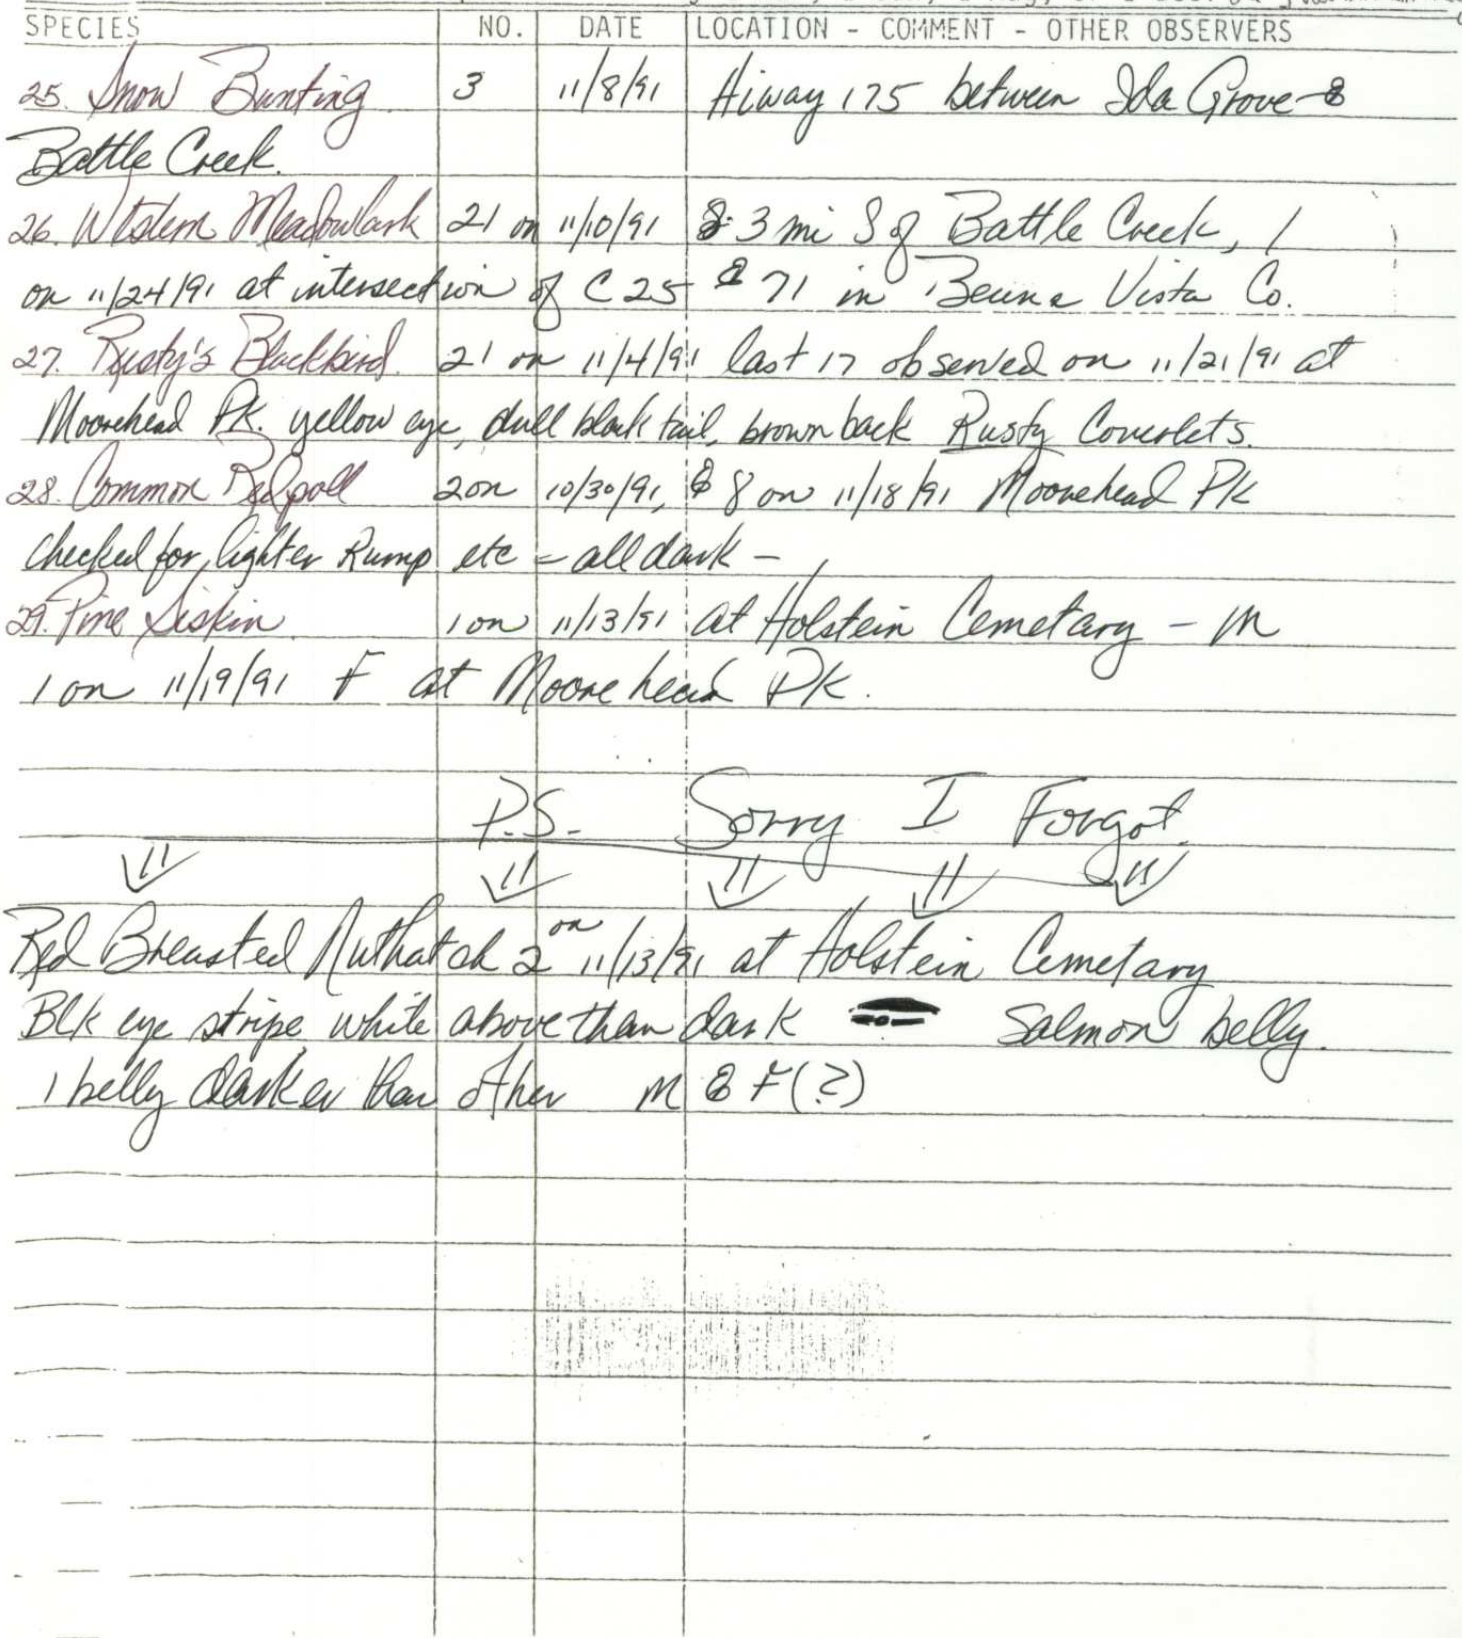 SPECIES NO. DATE LOCATION - COMMENT - OTHER OBSERVERS
25. Snow Bunting 3 11/8/91 Hiway 175 between Ida Grove &
Battle Creek.
26. Western Meadowlark 21 on 11/10/91 & 3 mi S of Battle Creek, 1
on 11/24/91 at intersection of C 25 & 71 in Beuna Vista Co.
27. Rusty's Blackbird. 21 on 11/4/91 last 17 observed on 11/21/91 at
Moorehead Pk. yellow eye, dull black tail, brown back Rusty Coverlets.
28. Common Redpoll 2 on 10/30/91, & 8 on 11/18/91 Moorehead Pk
checked for lighter Rump etc - all dark -
29. Pine Siskin 1 on 11/13/91 at Holstein Cemetary - M
1 on 11/19/91 F at Moorehead Pk.
P.S. Sorry I Forgot
Red Breasted Nuthatch 2 on 11/13/91 at Holstein Cemetary
Blk eye stripe white above than dark Salmon belly.
1 belly darker than other M & F (?)